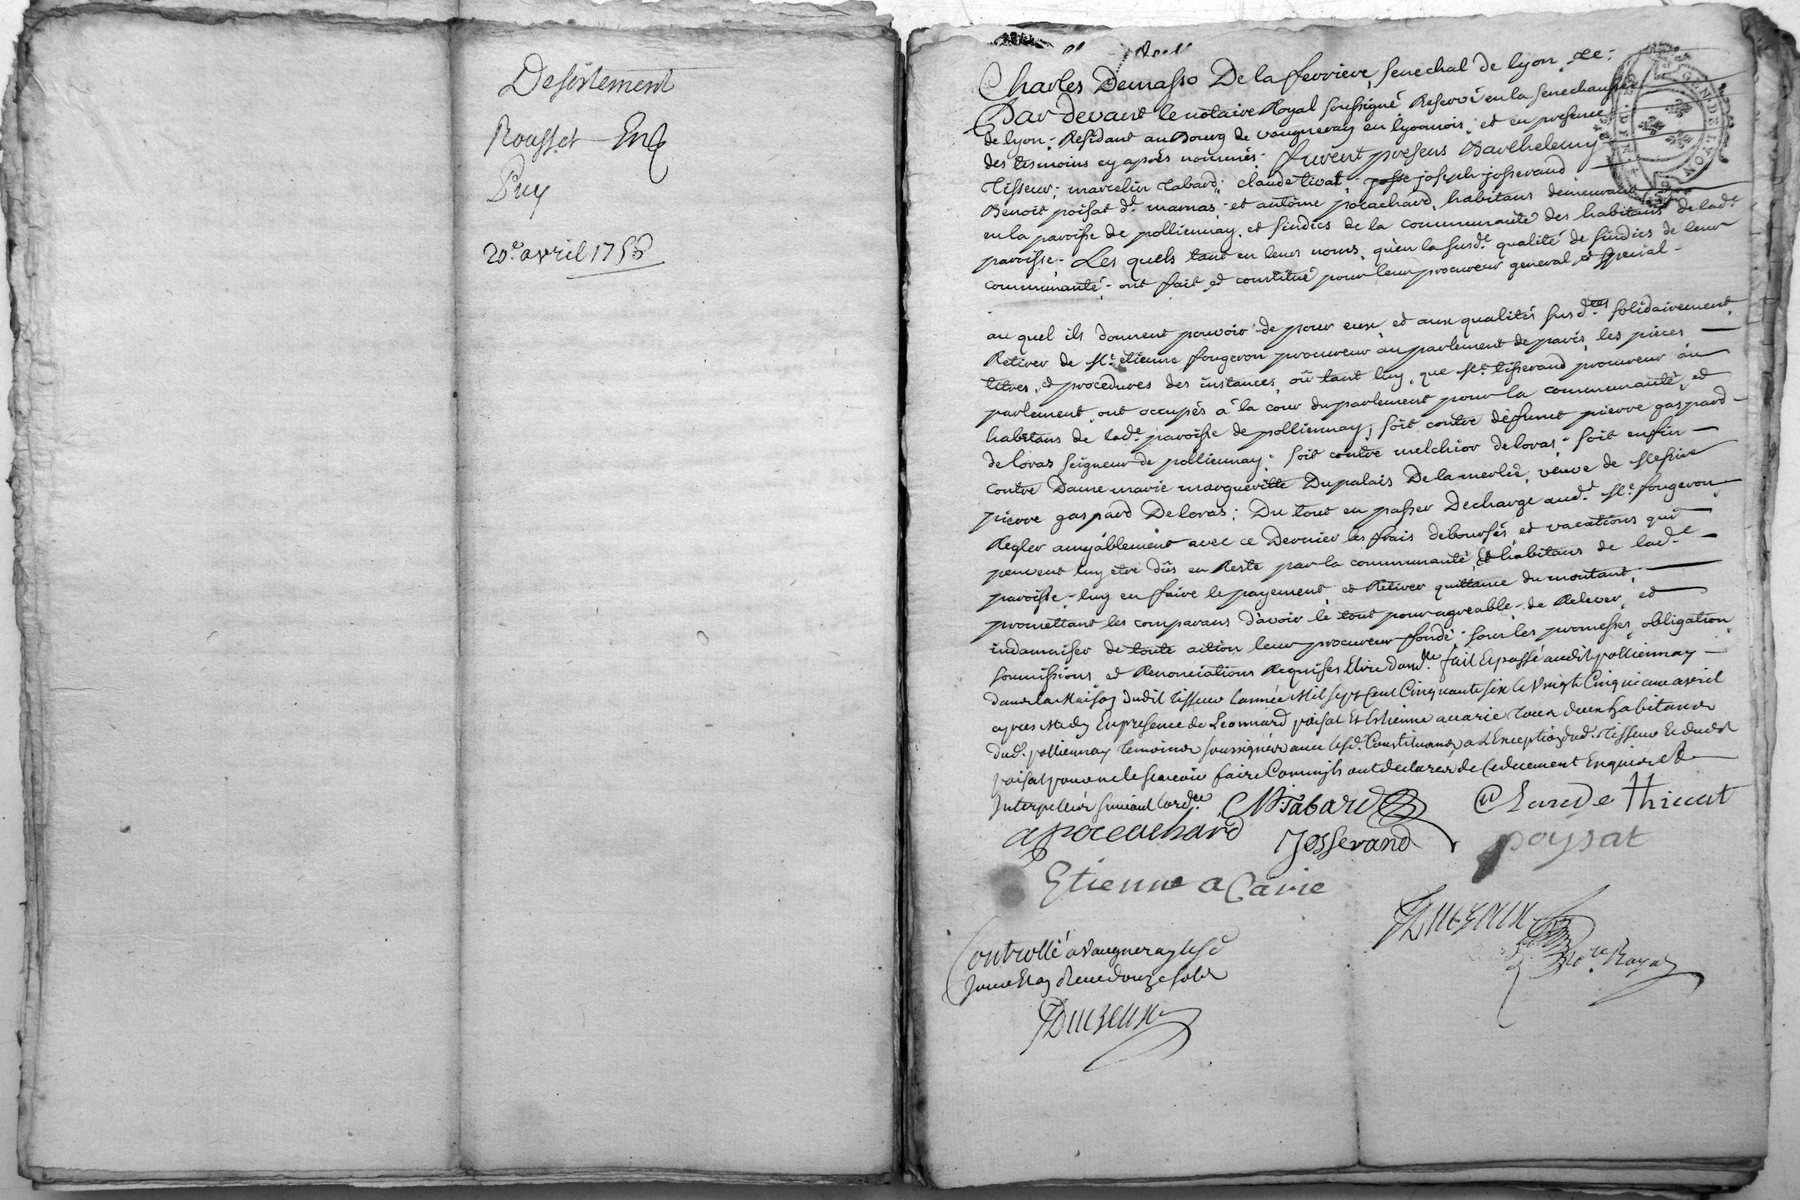 Desistement
Rousset
Puy
20e avril 1756
Charles Demasso De la ferriere, senechal de lyon &c:
Par devant le notaire Royal soussigné Reservé en la senechaussée
de lyon, Residant au Bourg de vaugneray en lyonnois, et en presence
des tesmoins cy après nommés. furent presens Barthelemy
Tisseur, marcelin Tabard, claude tivat, joseph josserand
Benoit poisat dt. marnas, et antoine pocachard, habitans demeurants
en la paroisse de polliennay, et sindics de la communauté des habitans de lade
paroisse. Les quels tant en leurs noms, qu'en la susde qualité de sindics de leur
communauté, ont fait et constitué pour leur procureur general et special
au quel ils donnent pouvoir de pour eux, et aux qualités susdees solidairement,
Retirer de Me. etienne fougeron procureur au parlement de paris, les pieces
titres, et procedures des instances, où tant luy, que Me. tisserand procureur au
parlement, ont occupés à la cour du parlement pour la communauté, et
habitans de lade. paroisse de polliennay, soit contre défunt pierre gaspard
de loras seigneur de polliennay; soit contre melchior de loras, soit enfin
contre Dame marie margueritte Dupalais Delamerlée, veuve de Messire
pierre gaspard De loras; Du tout en passer Decharge audt. Me. fougeron,
Regler amyablement avec ce Dernier les frais debourssés, et vacations qui
peuvent luy etre dûs en Reste par la communauté, et habitans de lade
paroisse, luy en faire le payement, et Retirer quittance du montant,
promettant les comparans d'avoir le tout pour agreable, de Relever, et
indamniser de toute action leur procureur fondé. sous les promesses, obligation,
soumissions, et Renonciations Requises fait Et passé audit polliennay
dans la Maison dudit tisseur l'année Mil sept Cent Cinquante six le Vingt Cinquieme avril
apres Midy En presence de Leonnard poisat Et Etienne acarie tous deux habitans
dud. polliennay temoins soussignés avec lesd. Constituans, a L'Exception dud. tisseur Et dudt
poisat pour ne le scavoir faire Comm'ils ont declarez de Ce duement Enquis et
Interpellés suivant lordce
M Tabard
Claude thivat
a pocachard
Josserand
poysat
Etienne a Carie
nore Royal
Controllé a Vaugneray lesd
jour Et an Reçu douze sols